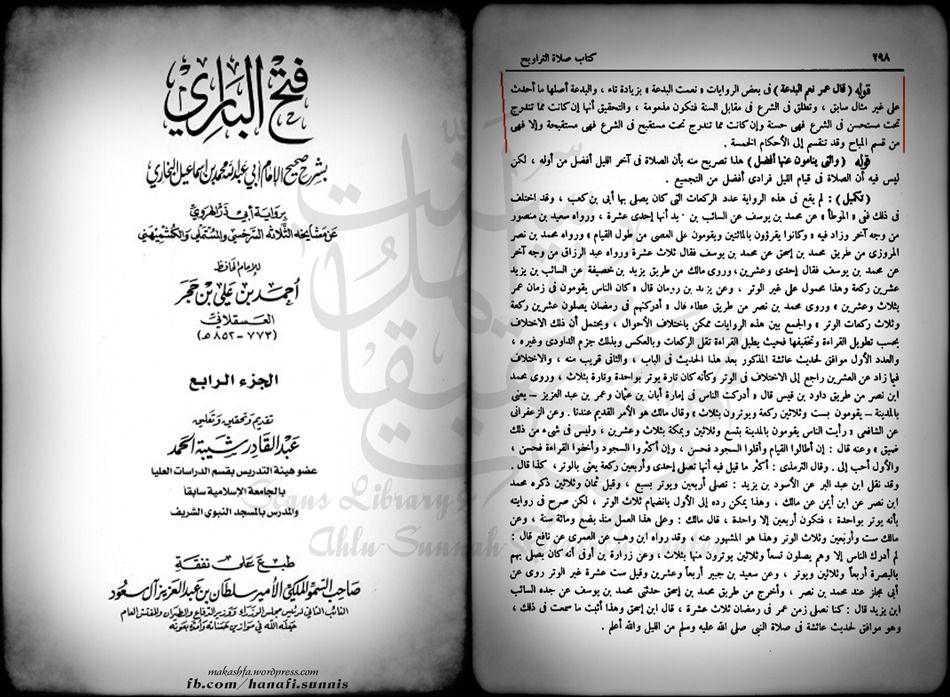 فتح الباري
بشرح صحيح الإمام أبي عبد الله محمد بن إسماعيل البخاري
برواية أبي ذر الهروي
عن مشايخه الثلاثة السرخسي والمستملي والكشميهني
للإمام الحافظ
أحمد بن علي بن حجر
العسقلاني
(٧٧٣ - ٨٥٢ هـ)
الجزء الرابع
تقديم وتحقيق وتعليق
عبد القادر شيبة الحمد
عضو هيئة التدريس بقسم الدراسات العليا
بالجامعة الإسلامية سابقا
والمدرس بالمسجد النبوي الشريف
طبع على نفقة
صاحب السمو الملكي الأمير سلطان بن عبد العزيز آل سعود
النائب الثاني لرئيس مجلس الوزراء ووزير الدفاع والطيران والمفتش العام
جعله الله في موازين حسناته وأمده بعونه
٢٩٨
كتاب صلاة التراويح
قوله (قال عمر نعم البدعة) فى بعض الروايات « نعمت البدعة » بزيادة تاء ، والبدعة أصلها ما أحدث
على غير مثال سابق ، وتطلق فى الشرع فى مقابل السنة فتكون مذمومة ، والتحقيق أنها إن كانت مما تندرج
تحت مستحسن فى الشرع فهى حسنة وإن كانت مما تندرج تحت مستقبح فى الشرع فهى مستقبحة وإلا فهى
من قسم المباح وقد تنقسم إلى الأحكام الخمسة .
قوله (والتى ينامون عنها أفضل) هذا تصريح منه بأن الصلاة فى آخر الليل أفضل من أوله ، لكن
ليس فيه أن الصلاة فى قيام الليل فرادى أفضل من التجميع .
(تكميل) : لم يقع فى هذه الرواية عدد الركعات التى كان يصلى بها أبى بن كعب ، وقد اختلف
فى ذلك ففى « الموطأ » عن محمد بن يوسف عن السائب بن يزيد أنها إحدى عشرة ، ورواه سعيد بن منصور
من وجه آخر وزاد فيه « وكانوا يقرؤون بالمائتين ويقومون على العصى من طول القيام » ورواه محمد بن نصر
المروزى من طريق محمد بن إسحق عن محمد بن يوسف فقال ثلاث عشرة ورواه عبد الرزاق من وجه آخر
عن محمد بن يوسف فقال إحدى وعشرين ، وروى مالك من طريق يزيد بن خصيفة عن السائب بن يزيد
عشرين ركعة وهذا محمول على غير الوتر ، وعن يزيد بن رومان قال « كان الناس يقومون فى زمان عمر
بثلاث وعشرين » وروى محمد بن نصر من طريق عطاء قال « أدركتهم فى رمضان يصلون عشرين ركعة
وثلاث ركعات الوتر » والجمع بين هذه الروايات ممكن باختلاف الأحوال ، ويحتمل أن ذلك الاختلاف
بحسب تطويل القراءة وتخفيفها فحيث يطيل القراءة تقل الركعات وبالعكس وبذلك جزم الداودى وغيره ،
والعدد الأول موافق لحديث عائشة المذكور بعد هذا الحديث فى الباب ، والثانى قريب منه ، والاختلاف
فيما زاد عن العشرين راجع إلى الاختلاف فى الوتر وكأنه كان تارة يوتر بواحدة وتارة بثلاث ، وروى محمد
ابن نصر من طريق داود بن قيس قال « أدركت الناس فى إمارة أبان بن عثمان وعمر بن عبد العزيز – يعنى
بالمدينة – يقومون بست وثلاثين ركعة ويوترون بثلاث » وقال مالك هو الأمر القديم عندنا . وعن الزعفرانى
عن الشافعى « رأيت الناس يقومون بالمدينة بتسع وثلاثين وبمكة بثلاث وعشرين ، وليس فى شىء من ذلك
ضيق » وعنه قال : إن أطالوا القيام وأقلوا السجود فحسن ، وإن أكثروا السجود وأخفوا القراءة فحسن ،
والأول أحب إلى . وقال الترمذى : أكثر ما قيل فيه أنها تصلى إحدى وأربعين ركعة يعنى بالوتر ، كذا قال .
وقد نقل ابن عبد البر عن الأسود بن يزيد : تصلى أربعين ويوتر بسبع ، وقيل ثمان وثلاثين ذكره محمد
ابن نصر عن ابن أيمن عن مالك ، وهذا يمكن رده إلى الأول بانضمام ثلاث الوتر ، لكن صرح فى روايته
بأنه يوتر بواحدة ، فتكون أربعين إلا واحدة ، قال مالك : وعلى هذا العمل منذ بضع ومائة سنة ، وعن
مالك ست وأربعين وثلاث الوتر وهذا هو المشهور عنه ، وقد رواه ابن وهب عن العمرى عن نافع قال :
لم أدرك الناس إلا وهم يصلون تسعاً وثلاثين يوترون منها بثلاث ، وعن زرارة بن أوفى أنه كان يصلى بهم
بالبصرة أربعاً وثلاثين ويوتر ، وعن سعيد بن جبير أربعاً وعشرين وقيل ست عشرة غير الوتر روى عن
أبى مجلز عند محمد بن نصر ، وأخرج من طريق محمد بن إسحق حدثنى محمد بن يوسف عن جده السائب
ابن يزيد قال : كنا نصلى زمن عمر فى رمضان ثلاث عشرة ، قال ابن إسحق وهذا أثبت ما سمعت فى ذلك ،
وهو موافق لحديث عائشة فى صلاة النبى صلى الله عليه وسلم من الليل والله أعلم .
Scans Library
Ahlu-Sunnah
makashfa.wordpress.com
fb.com/hanafi.sunnis